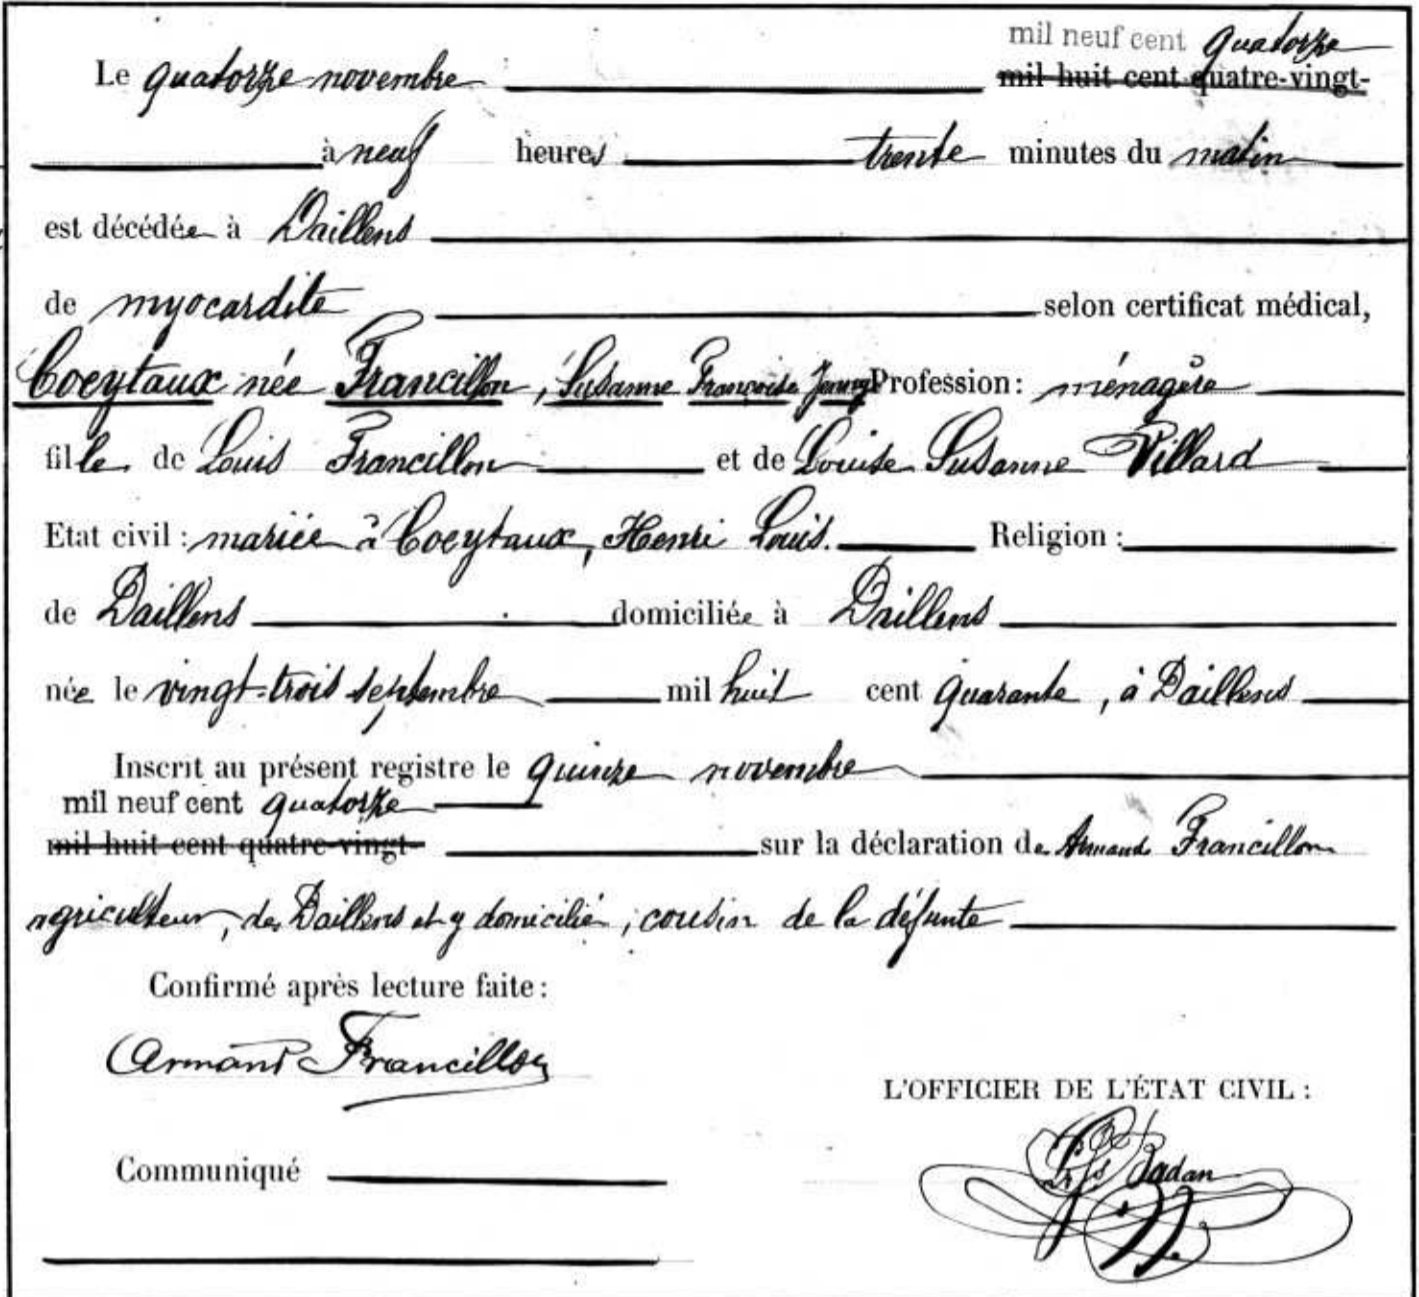 mil neuf cent quatorze
Le quatorze novembre mil huit cent quatre-vingt-
à neuf heures trente minutes du matin
est décédée à Daillens
de myocardite selon certificat médical,
Coeytaux née Francillon, Susanne Françoise Jenny Profession: ménagère
fille de Louis Francillon et de Louise Susanne Villard
Etat civil: mariée à Coeytaux, Henri Louis. Religion:
de Daillens domiciliée à Daillens
née le vingt-trois septembre mil huit cent quarante, à Daillens
Inscrit au présent registre le quinze novembre
mil neuf cent quatorze
mil huit cent quatre-vingt- sur la déclaration de Armand Francillon
agriculteur, de Daillens et y domicilié, cousin de la défunte
Confirmé après lecture faite:
Armand Francillon
L'OFFICIER DE L'ÉTAT CIVIL:
Communiqué
Badan